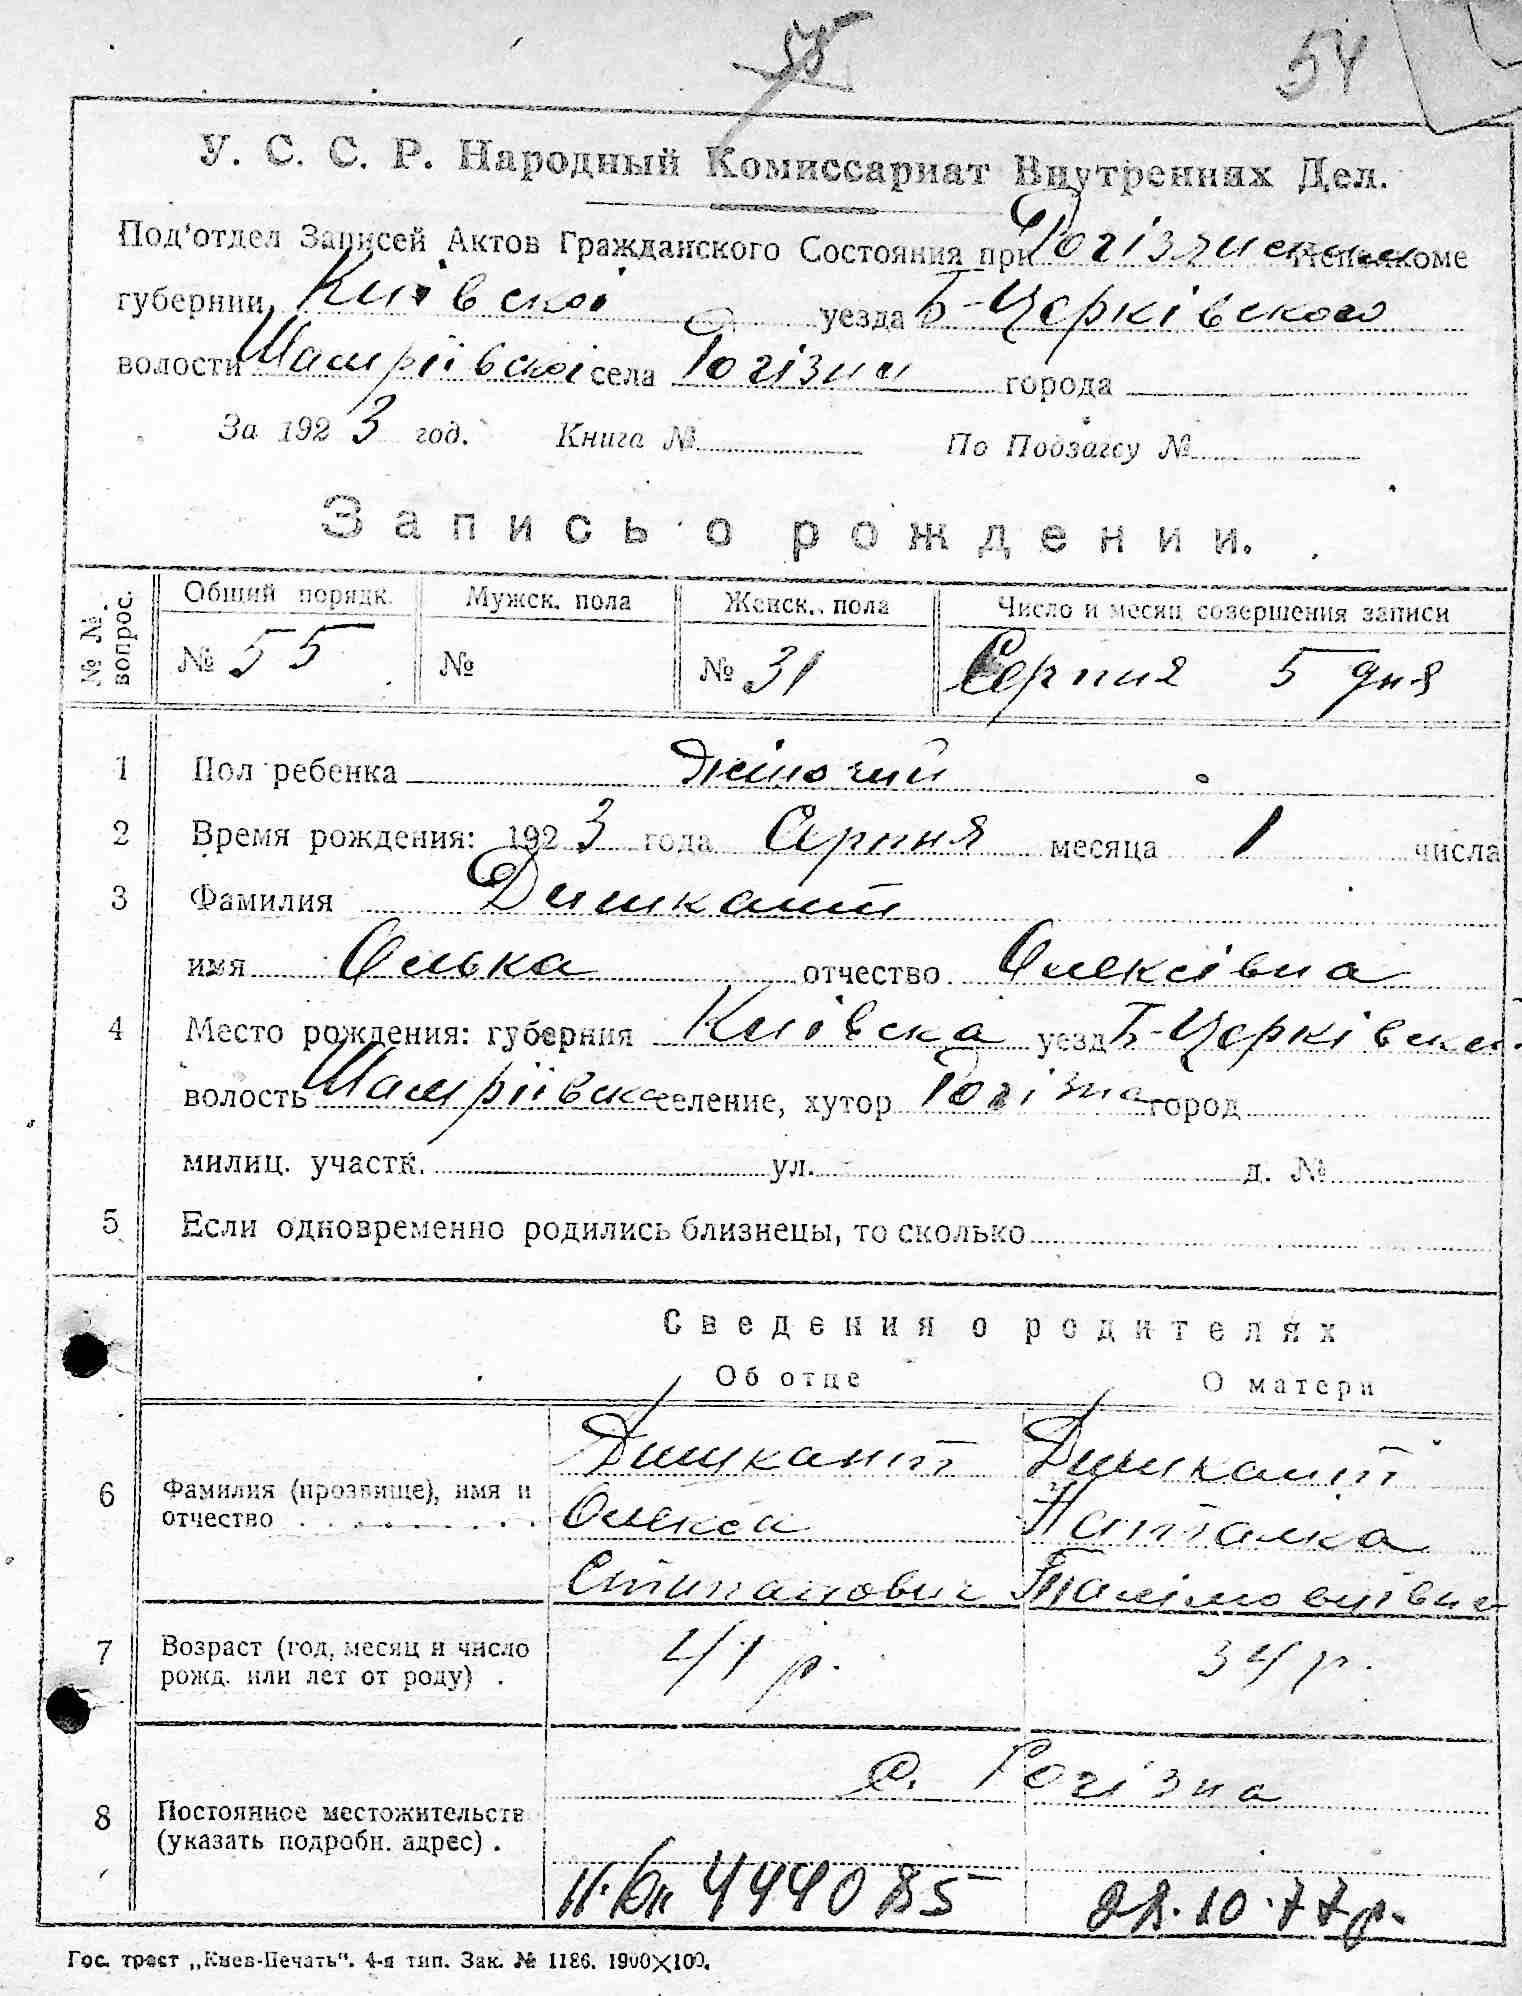 58
54
У. С. С. Р. Народный Комиссариат Внутренних Дел.
Под'отдел Записей Актов Гражданского Состояния при Рогізянськом Исполкоме
губернии Київскоі уезда Б-Церківского
волости Шамріївскоі села Рогізни города
За 1923 год. Книга № По Подзагсу №
Запись о рождении.
№ № вопрос. Общий порядк. Мужск. пола Женск. пола Число и месяц совершения записи
№ 55 № № 31 Серпня 5 дня
1 Пол ребенка жіночий
2 Время рождения: 1923 года Серпня месяца 1 числа
3 Фамилия Дишкант
имя Олька отчество Олексівна
4 Место рождения: губерния Київска уезд Б-Церківск.
волость Шамріївска селение, хутор Рогізна город
милиц. участк. ул. д. №
5 Если одновременно родились близнецы, то сколько
Сведения о родителях
Об отце О матери
Дишкант Дишкант
6 Фамилия (прозвище), имя и отчество Олекса Наталка
Степанович
7 Возраст (год, месяц и число рожд. или лет от роду) . 41 р. 34 р.
с. Рогізна
8 Постоянное местожительств (указать подробн. адрес) .
444085 22.10.77р.
Гос. трест „Киев-Печать“. 4-я тип. Зак. № 1186. 1900×100.